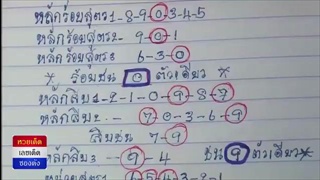 หลักร้อยสูตร1-8-9-0-3-4-5
หลักร้อยสูตร2-9-0-1
หลักร้อยสูตร3 6-3-0
* ร้อยชน 0 ตัวเดียว *
หลักสิบ1-2-1-0-9-8-7
หลักสิบ2- 7-0-3-6-9
สิบชน 7-9
หลักสิบ3- 9-4 ชน 9 ตัวเดียว*
6-5-4-3-2-1
หวยเด็ด
เลขเด็ด
ซองดัง